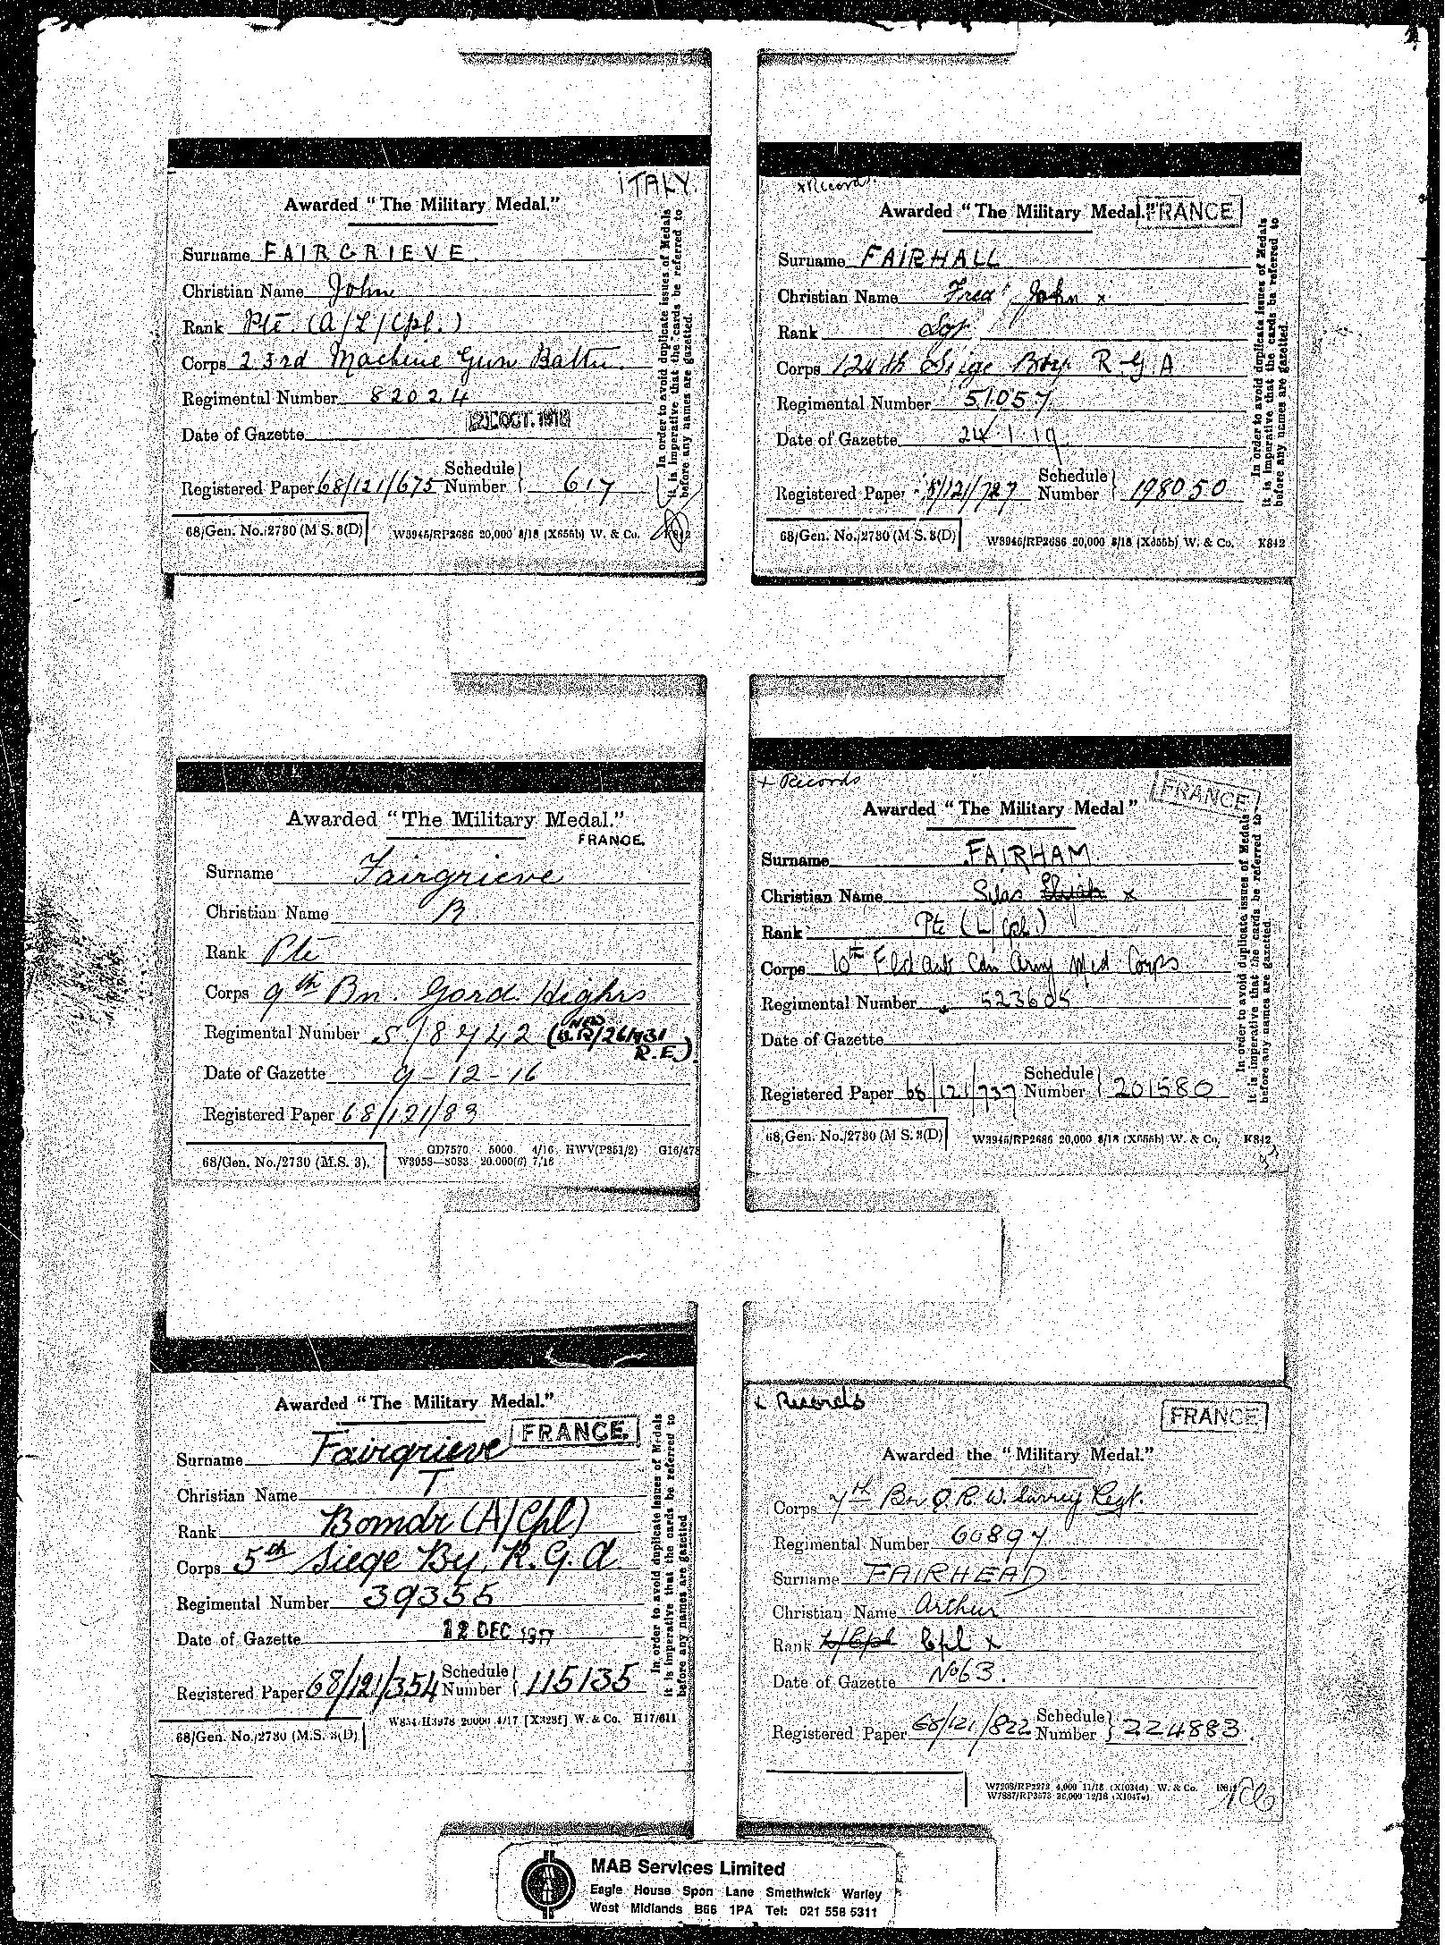 ITALY.
Awarded "The Military Medal."
Surname FAIRGRIEVE.
Christian Name John
Rank Pte (A/L/Cpl.)
Corps 23rd Machine Gun Battn.
Regimental Number 82024
Date of Gazette 21 OCT. 1918
Registered Paper 68/121/675 Schedule Number } 617
68/Gen. No./2730 (M S. 3(D)
W3946/RP2686 20,000 8/18 (X655b) W. & Co. K842
In order to avoid duplicate issues of Medals
it is imperative that the cards be referred to
before any names are gazetted.
x Record
Awarded "The Military Medal." FRANCE
Surname FAIRHALL
Christian Name Fred John x
Rank Sgt
Corps 124th Siege Bty. R.G.A
Regimental Number 51057
Date of Gazette 24.1.19
Registered Paper 8/121/727 Schedule Number } 198050
68/Gen. No./2730 (M S. 3(D)
W3946/RP2686 20,000 8/18 (X655b) W. & Co. K842
In order to avoid duplicate issues of Medals
it is imperative that the cards be referred to
before any names are gazetted.
Awarded "The Military Medal."
FRANCE.
Surname Fairgrieve
Christian Name R
Rank Pte
Corps 9th Bn. Gord. Highrs
Regimental Number S/8742 (NEW
/26/731
R.E.)
Date of Gazette 9-12-16
Registered Paper 68/121/83
68/Gen. No./2730 (M.S. 3).
GD7570 5000 4/16 HWV(P351/2) G16/478
W3053—8083 20.000(6) 7/16
+ Records
FRANCE
Awarded "The Military Medal"
Surname FAIRHAM
Christian Name Silas Elijah x
Rank Pte (L/Cpl)
Corps 10th Fld Amb Can Army Med Corps
Regimental Number 523605
Date of Gazette
Registered Paper 68/121/737 Schedule Number } 201580
68,Gen. No./2730 (M S. 3(D)
W3946/RP2686 20,000 8/18 (X655b) W. & Co. K842
In order to avoid duplicate issues of Medals
it is imperative that the cards be referred to
before any names are gazetted.
Awarded "The Military Medal."
FRANCE.
Surname Fairgrieve
Christian Name T
Rank Bomdr (A/Cpl)
Corps 5th Siege By. R.G.A.
Regimental Number 39355
Date of Gazette 12 DEC 1917
Registered Paper 68/121/354 Schedule Number } 115135
68/Gen. No./2730 (M.S. 3(D)
W834/H3978 20000 4/17 [X328f] W. & Co. H17/611
In order to avoid duplicate issues of Medals
it is imperative that the cards be referred to
before any names are gazetted
x Records
FRANCE
Awarded the "Military Medal."
Corps 7th Bn Q.R.W. Surrey Regt.
Regimental Number 60897
Surname FAIRHEAD
Christian Name Arthur
Rank L/Cpl Cpl x
Date of Gazette No 63.
Registered Paper 68/121/822 Schedule Number } 224883.
W7208/RP2273 4,000 11/18 (X1034d) W. & Co.
W7887/RP3573 26,000 12/18 (X1047a)
MAB Services Limited
Eagle House Spon Lane Smethwick Warley
West Midlands B66 1PA Tel: 021 558 5311